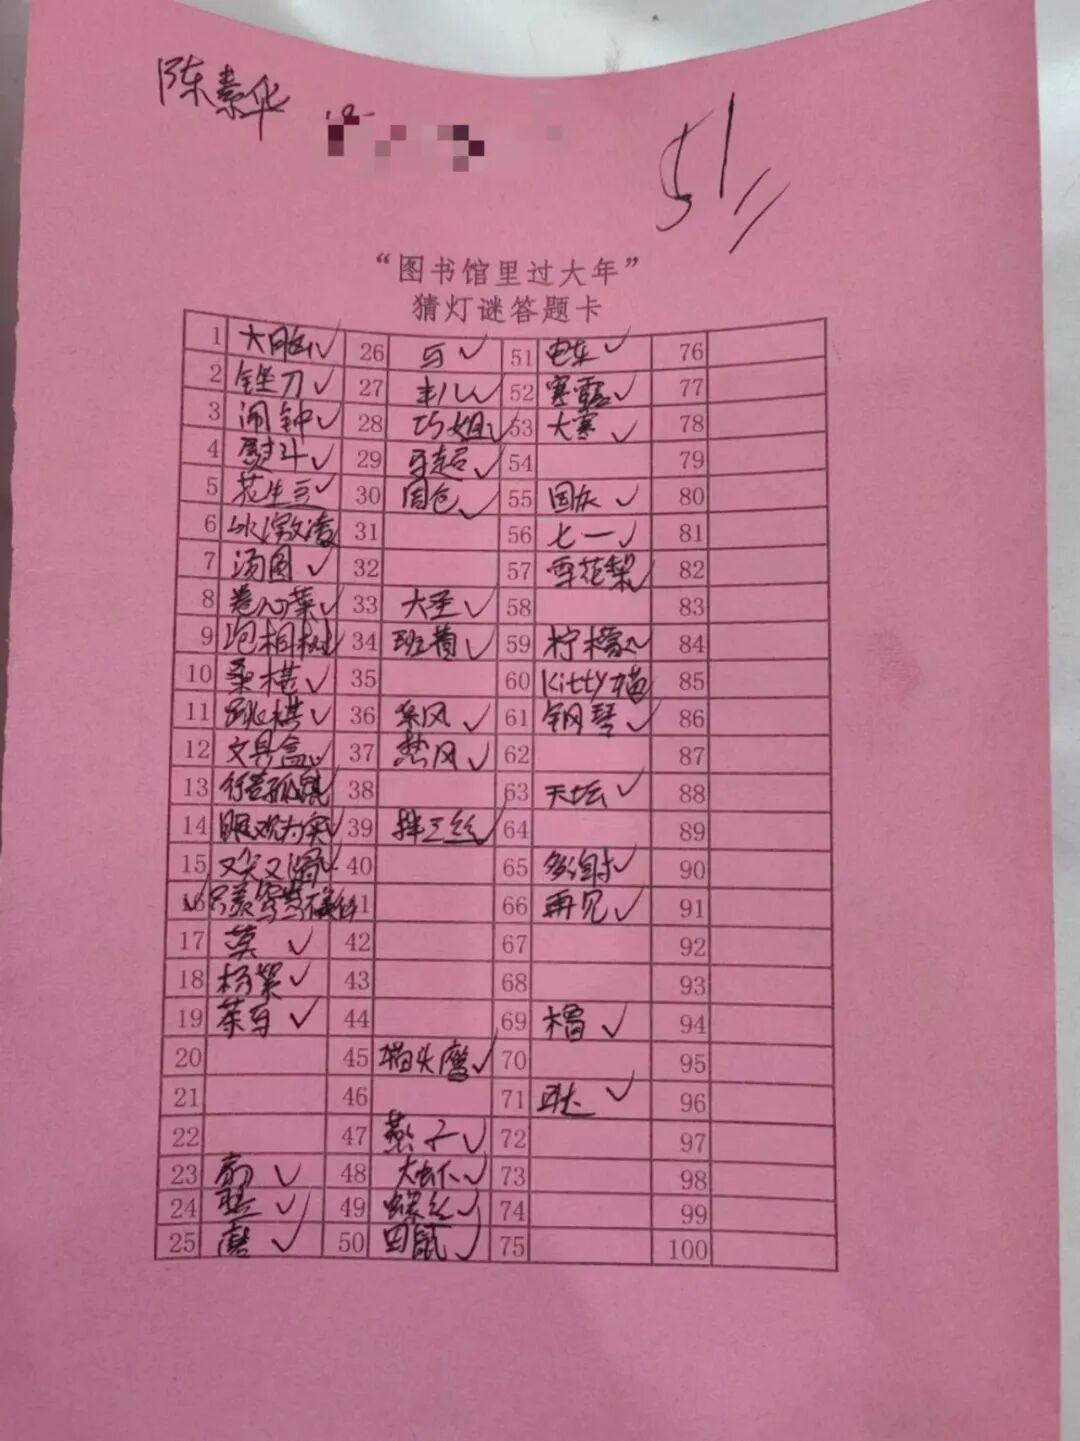 陈素华
51
“图书馆里过大年”
猜灯谜答题卡
1 大脑 26 马 51 电车 76
2 锉刀 27 羊儿 52 寒露 77
3 闹钟 28 巧姐 53 大寒 78
4 熨斗 29 马超 54 79
5 花生豆 30 周仓 55 国庆 80
6 冰激凌 31 56 七一 81
7 汤圆 32 57 雪花梨 82
8 卷心菜 33 大圣 58 83
9 34 班黄 59 柠檬 84
10 桑椹 35 60 Kitty猫 85
11 跳棋 36 采风 61 钢琴 86
12 文具盒 37 热风 62 87
13 38 63 天坛 88
14 眼观为实 39 拌三丝 64 89
15 又尖又滑 40 65 90
16 41 66 再见 91
17 莫 42 67 92
18 杨絮 43 68 93
19 44 69 94
20 45 猫头鹰 70 95
21 46 71 耿 96
22 47 燕子 72 97
23 48 大虾 73 98
24 49 螺丝 74 99
25 50 田鼠 75 100